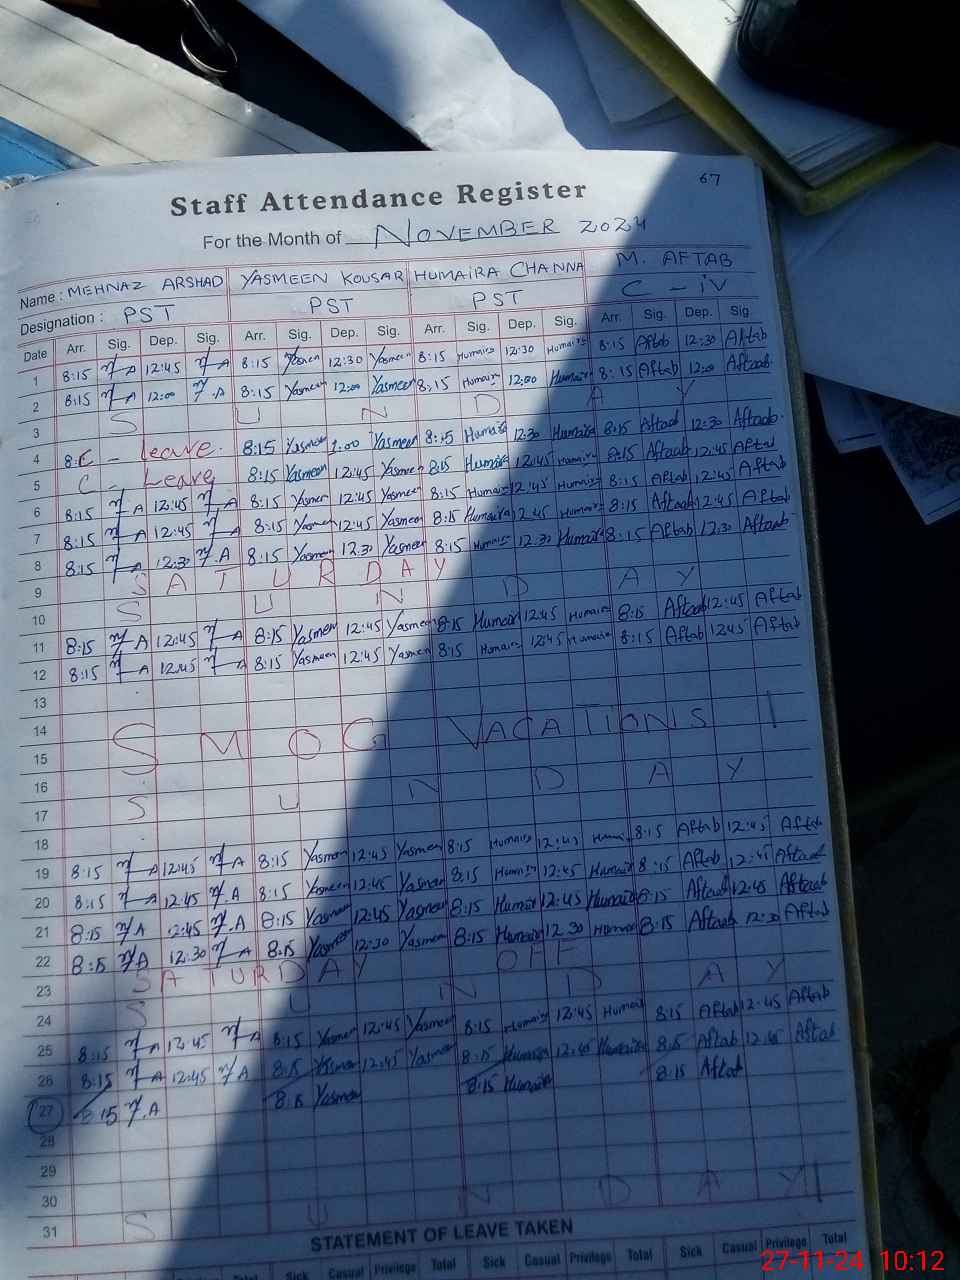 67
Staff Attendance Register
For the Month of NOVEMBER 2024
Name: MEHNAZ ARSHAD YASMEEN KOUSAR HUMAIRA CHANNA M. AFTAB
Designation: PST PST PST C-iV
Date Arr. Sig. Dep. Sig. Arr. Sig. Dep. Sig. Arr. Sig. Dep. Sig. Arr. Sig. Dep. Sig.
1 8:15 M-A 12:45 M-A 8:15 Yasmeen 12:30 Yasmeen 8:15 Humaira 12:30 Humaira 8:15 Aftab 12:30 Aftab
2 8:15 M-A 12:00 M.A 8:15 Yasmeen 12:00 Yasmeen 8:15 Humaira 12:00 Humaira 8:15 Aftab 12:00 Aftaab
3 SUNDAY
4 C - Leave. 8:15 Yasmeen 1:00 Yasmeen 8:15 Humaira 12:30 Humaira 8:15 Aftaab 12:30 Aftaab
5 C - Leave 8:15 Yasmeen 12:45 Yasmeen 8:15 Humaira 12:45 Humaira 8:15 Aftaab 12:45 Aftab
6 8:15 M-A 12:45 M-A 8:15 Yasmeen 12:45 Yasmeen 8:15 Humaira 12:45 Humaira 8:15 Aftab 12:45 Aftab
7 8:15 M-A 12:45 M-A 8:15 Yasmeen 12:45 Yasmeen 8:15 Humaira 12:45 Humaira 8:15 Aftaab 12:45 Aftab
8 8:15 M-A 12:30 M.A 8:15 Yasmeen 12:30 Yasmeen 8:15 Humaira 12:30 Humaira 8:15 Aftab 12:30 Aftaab
9 SATURDAY
10 SUNDAY
11 8:15 M-A 12:45 M-A 8:15 Yasmeen 12:45 Yasmeen 8:15 Humaira 12:45 Humaira 8:15 Aftaab 12:45 Aftab
12 8:15 M-A 12:45 M-A 8:15 Yasmeen 12:45 Yasmeen 8:15 Humaira 12:45 Humaira 8:15 Aftab 12:45 Aftab
13
14
15 SMOG VACATIONS
16
17 SUNDAY
18
19 8:15 M-A 12:45 M-A 8:15 Yasmeen 12:45 Yasmeen 8:15 Humaira 12:45 8:15 Aftab 12:45 Aftab
20 8:15 M-A 12:45 M.A 8:15 Yasmeen 12:45 Yasmeen 8:15 Humaira 12:45 Humaira 8:15 Aftab 12:45 Aftaab
21 8:15 M/A 12:45 M.A 8:15 Yasmeen 12:45 Yasmeen 8:15 Humaira 12:45 Humaira 8:15 Aftaab 12:45 Aftaab
22 8:15 M/A 12:30 M-A 8:15 Yasmeen 12:30 Yasmeen 8:15 Humaira 12:30 Humaira 8:15 Aftaab 12:30 Aftab
23 SATURDAY OFF
24 SUNDAY
25 8:15 M-A 12:45 M-A 8:15 Yasmeen 12:45 Yasmeen 8:15 Humaira 12:45 Humaira 8:15 Aftab 12:45 Aftab
26 8:15 M-A 12:45 M.A 8:15 Yasmeen 12:45 Yasmeen 8:15 Humaira 12:45 Humaira 8:15 Aftab 12:45 Aftab
27 8:15 M.A 8:15 Yasmeen 8:15 Humaira 8:15 Aftab
28
29
30
31 SUNDAY
STATEMENT OF LEAVE TAKEN
Total Sick Casual Privilege Total Sick Casual Privilege Total Sick Casual Privilege Total
27-11-24 10:12